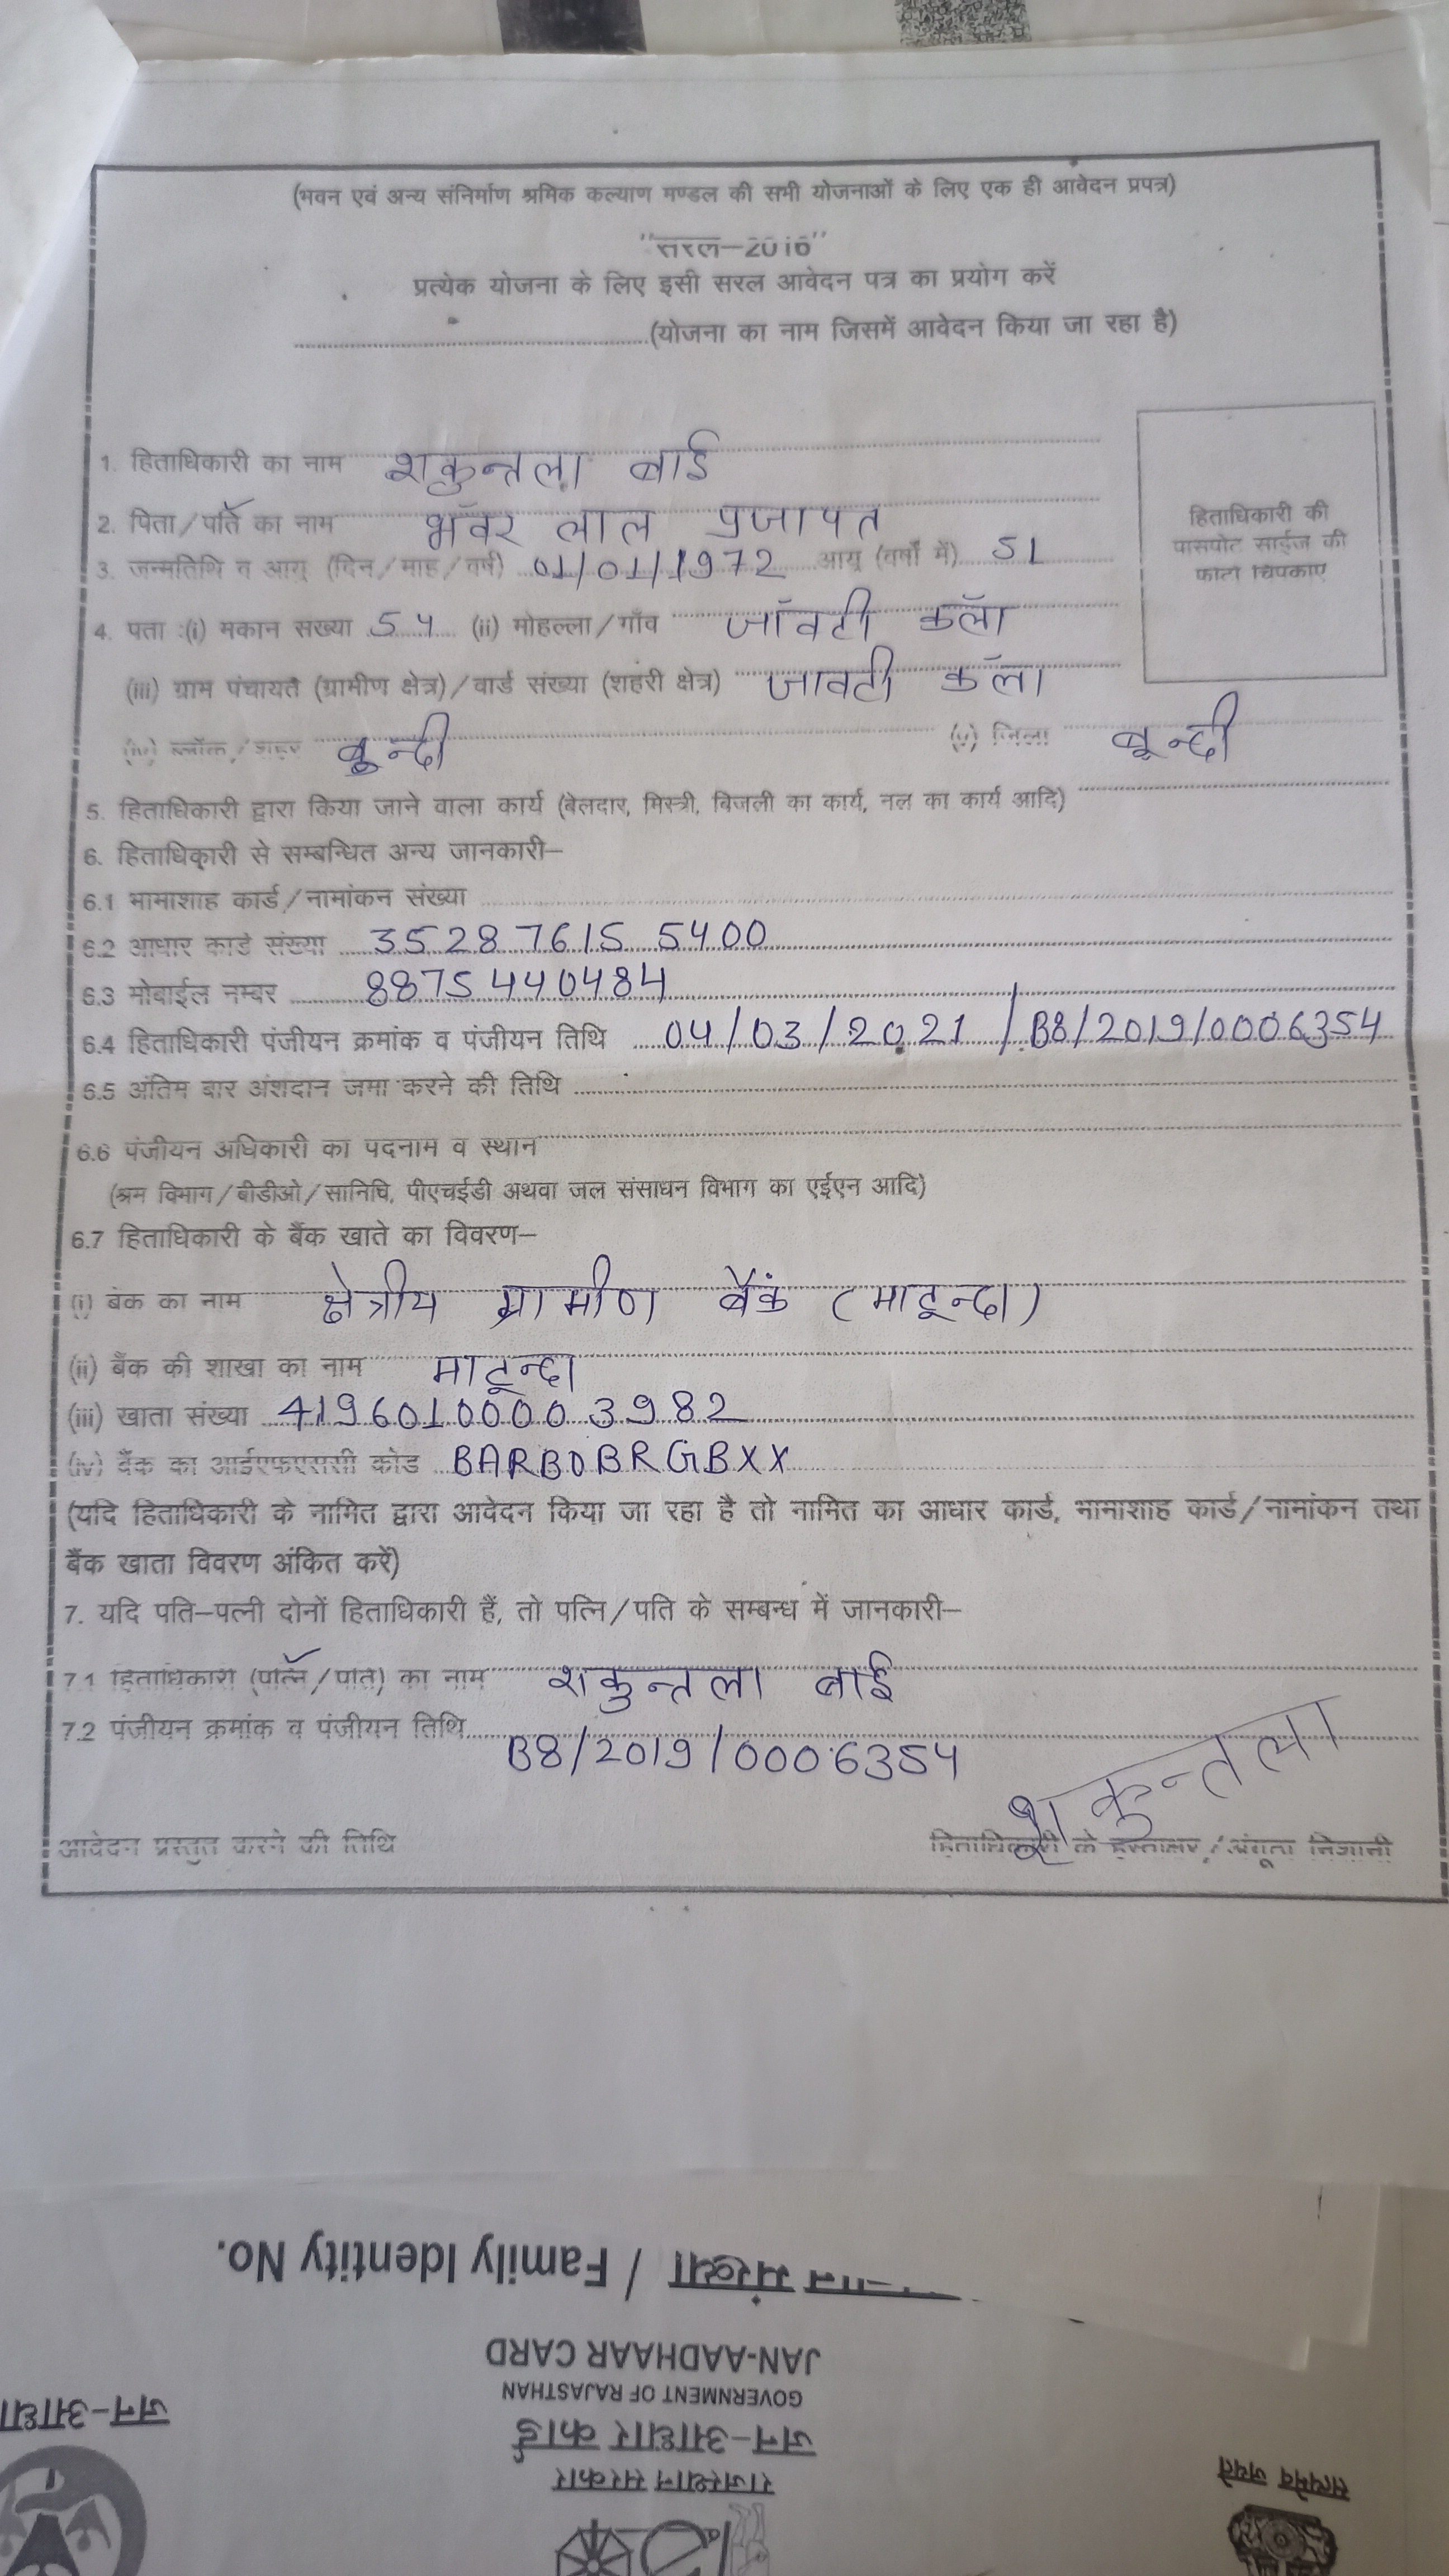 (भवन एवं अन्य संनिर्माण श्रमिक कल्याण मण्डल की सभी योजनाओं के लिए एक ही आवेदन प्रपत्र)
"सरल–2016"
प्रत्येक योजना के लिए इसी सरल आवेदन पत्र का प्रयोग करें
(योजना का नाम जिसमें आवेदन किया जा रहा है)
1. हिताधिकारी का नाम शकुन्तला बाई
2. पिता/पति का नाम भँवर लाल प्रजापत
हिताधिकारी की
पासपोट साईज की
फोटो चिपकाए
3. जन्मतिथि व आयु (दिन/माह/वर्ष) 01/01/1972 आयु (वर्षों में) 51
4. पता :(i) मकान सख्या 54 (ii) मोहल्ला/गाँव जॉवटी कॅला
(iii) ग्राम पंचायत (ग्रामीण क्षेत्र)/वार्ड संख्या (शहरी क्षेत्र) जावटी कॅला
(iv) ब्लॉक/शहर बून्दी (v) जिला बून्दी
5. हिताधिकारी द्वारा किया जाने वाला कार्य (बेलदार, मिस्त्री, बिजली का कार्य, नल का कार्य आदि)
6. हिताधिकारी से सम्बन्धित अन्य जानकारी–
6.1 भामाशाह कार्ड/नामांकन संख्या
6.2 आधार कार्ड संख्या 3528 7615 5400
6.3 मोबाईल नम्बर 8875440484
6.4 हिताधिकारी पंजीयन क्रमांक व पंजीयन तिथि 04/03/2021 / B8/2019/0006354
6.5 अंतिम बार अंशदान जमा करने की तिथि
6.6 पंजीयन अधिकारी का पदनाम व स्थान
(श्रम विभाग/बीडीओ/सानिधि, पीएचईडी अथवा जल संसाधन विभाग का एईएन आदि)
6.7 हिताधिकारी के बैंक खाते का विवरण–
(i) बंक का नाम क्षेत्रीय ग्रामीण बैंक (माटून्दा)
(ii) बैंक की शाखा का नाम माटून्दा
(iii) खाता संख्या 41960100003982
(iv) बैंक का आईएफएससी कोड BARB0BRGBXX
(यदि हिताधिकारी के नामित द्वारा आवेदन किया जा रहा है तो नामित का आधार कार्ड, भामाशाह कार्ड/नामांकन तथा
बैंक खाता विवरण अंकित करें)
7. यदि पति–पत्नी दोनों हिताधिकारी हैं, तो पत्नि/पति के सम्बन्ध में जानकारी–
7.1 हिताधिकारी (पत्नि/पति) का नाम शकुन्तला बाई
7.2 पंजीयन क्रमांक व पंजीयन तिथि B8/2019/0006354
शकुन्तला
आवेदन प्रस्तुत करने की तिथि हिताधिकारी के हस्ताक्षर/अंगूठा निशानी
संख्या / Family Identity No.
JAN-AADHAAR CARD
GOVERNMENT OF RAJASTHAN
जन-आधार कार्ड
राजस्थान सरकार
जन-आधा
सत्यमेव जयते